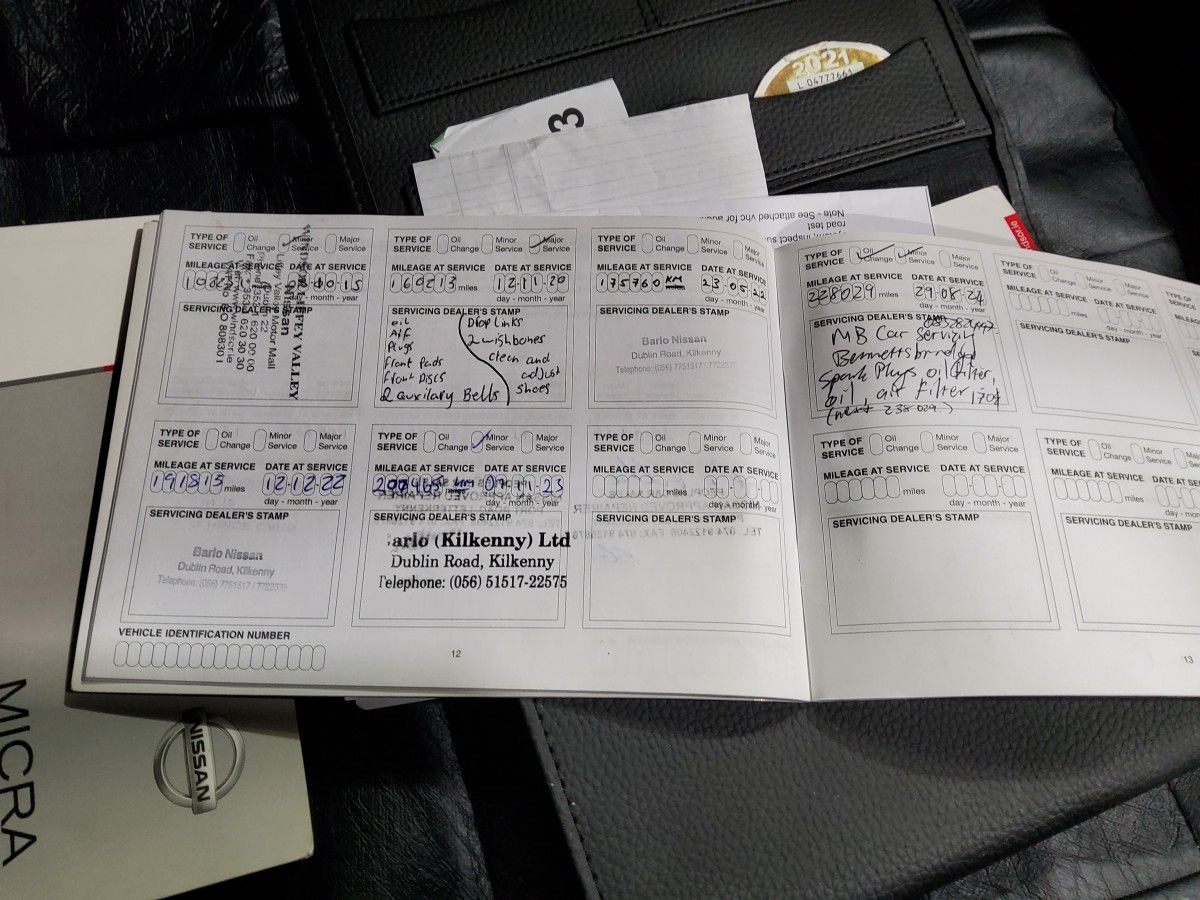 2021
L 04777661
3
Note - See attached vhc for
road test
TYPE OF SERVICE Oil Change Minor Service Major Service
MILEAGE AT SERVICE DATE AT SERVICE
day - month - year
SERVICING DEALER'S STAMP
LIFFEY VALLEY
Nissan
Liffey Valley Motor Mall
TYPE OF SERVICE Oil Change Minor Service Major Service
MILEAGE AT SERVICE DATE AT SERVICE
160213 miles 12-11-20
day - month - year
SERVICING DEALER'S STAMP
oil
A/F
Plugs
front Pads
front Discs
2 auxilary Bells
Drop Links
2 wishbones
clean and
adjust
shoes
TYPE OF SERVICE Oil Change Minor Service Major Service
MILEAGE AT SERVICE DATE AT SERVICE
175760 KM 23-05-22
day - month - year
SERVICING DEALER'S STAMP
Barlo Nissan
Dublin Road, Kilkenny
Telephone: (056) 7751517 / 7722575
TYPE OF SERVICE Oil Change Minor Service Major Service
MILEAGE AT SERVICE DATE AT SERVICE
228029 miles 29-08-24
day - month - year
SERVICING DEALER'S STAMP
MB Car Servicing
Bennettsbridge
Spark Plugs oil filter,
oil, air filter,
(next 238029.)
TYPE OF SERVICE Oil Change Minor Service Major Service
MILEAGE AT SERVICE DATE AT SERVICE
miles
day - month - year
SERVICING DEALER'S STAMP
TYPE OF SERVICE Oil Change Minor Service Major Service
MILEAGE AT SERVICE DATE AT SERVICE
191815 miles 12-12-22
day - month - year
SERVICING DEALER'S STAMP
Barlo Nissan
Dublin Road, Kilkenny
Telephone: (056) 7751517 / 7722575
TYPE OF SERVICE Oil Change Minor Service Major Service
MILEAGE AT SERVICE DATE AT SERVICE
day - month - year
SERVICING DEALER'S STAMP
arlo (Kilkenny) Ltd
Dublin Road, Kilkenny
Telephone: (056) 51517-22575
TYPE OF SERVICE Oil Change Minor Service Major Service
MILEAGE AT SERVICE DATE AT SERVICE
miles day - month - year
SERVICING DEALER'S STAMP
TYPE OF SERVICE Oil Change Minor Service Major Service
MILEAGE AT SERVICE DATE AT SERVICE
miles day - month - year
SERVICING DEALER'S STAMP
TYPE OF SERVICE Oil Change Minor Service Major
MILEAGE AT SERVICE DATE AT SERVICE
miles
SERVICING DEALER'S STAMP
VEHICLE IDENTIFICATION NUMBER
12
13
NISSAN
MICRA